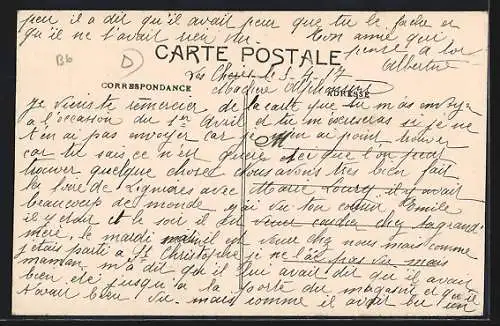 peu il a dit qu'il avait peur que tu te fache et
qu'il ne l'avait rien vu. Ton amie qui
pense a toi
Albertine
Bb
D
CARTE POSTALE
CORRESPONDANCE
ADRESSE
Les le 3-4-17
Alphonsine
Je viens te remercier de la carte que tu m'as envoyer
a l'occasion du 1er Avril et tu m'excuseras si je ne
t'en ai pas envoyer car je n'en ai point trouver
car tu sais ce n'est guère ici que l'on peut
trouver quelque choses nous avons très bien fait
la foire de Lignières avec Marie il y avait
beaucoup de monde j'ai vu ton cousin Emile
il y était et le soir il est venu coucher chez sa grand
mère. le mardi matin il est venu chez nous mais comme
j'étais parti a St Christophe je ne l'ai pas vu mais
maman m'a dit qu'il lui avait dit qu'il avait
bien été jusqu'a la porte du magasin et qu'il
t'avait bien vu. mais comme il avait bu un